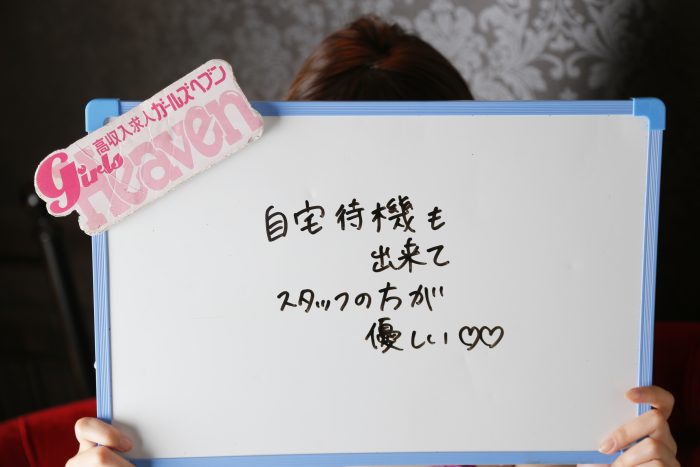 高収入求人ガールズヘブン
Girls Heaven
自宅待機も
出来て
スタッフの方が
優しい♡♡